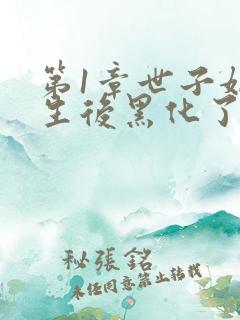 第1章世子
生後黑化了
秘張銘
未经同意禁止转载